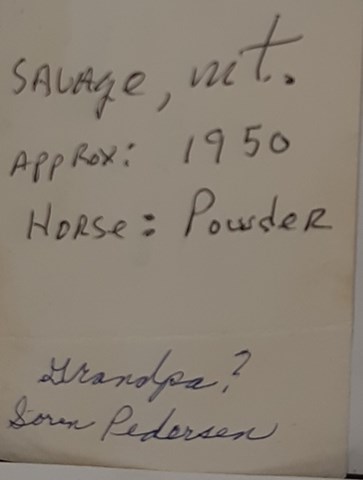 SAVAge, mt.
Approx: 1950
Horse: Powder
Grandpa?
Soren Pedersen